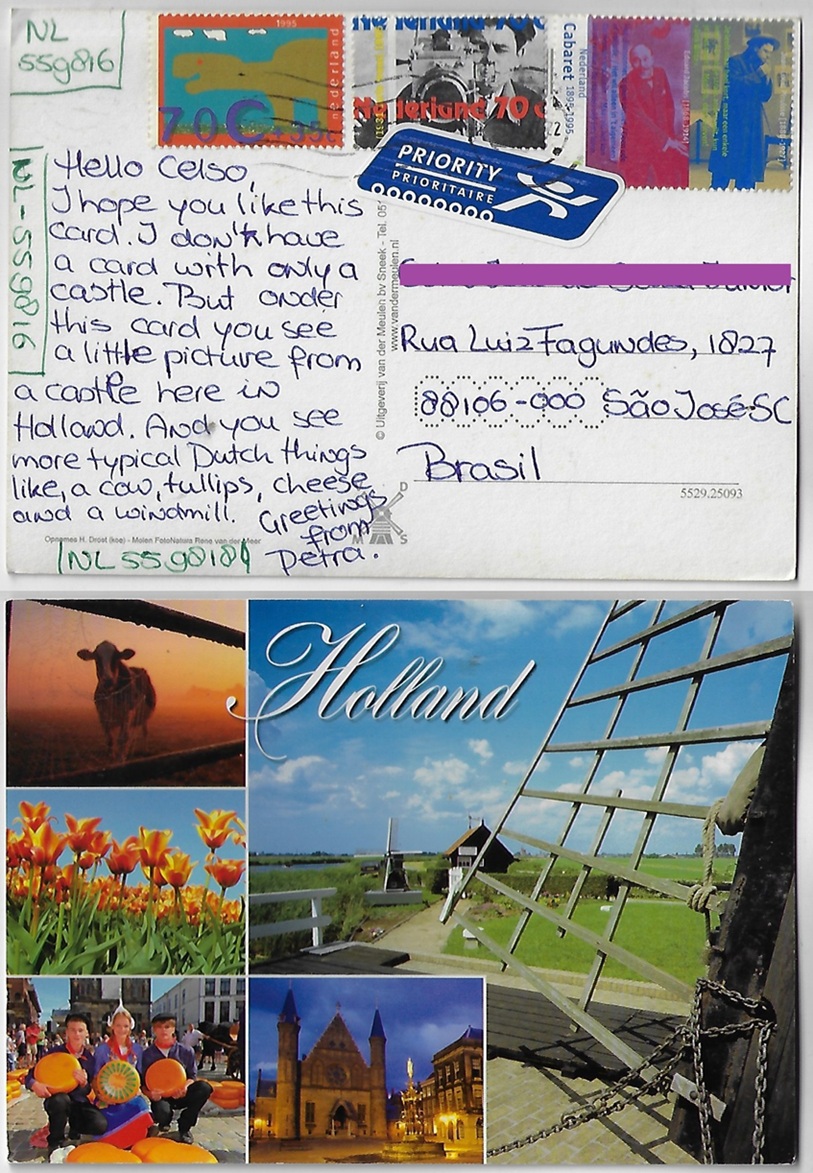 NL
559816
1995
nederland
70c+35c
Nederland 70
Nederland 70c
Nederland
Cabaret 1895-1995
PRIORITY
PRIORITAIRE
NL-559816
Hello Celso,
I hope you like this
card. I don't have
a card with only a
castle. But onder
this card you see
a little picture from
a castle here in
Holland. And you see
more typical Dutch things
like, a cow, tullips, cheese
and a windmill. Greetings
from
Petra.
NL 559818
© Uitgeverij van der Meulen bv Sneek - Tel. 051
www.vandermeulen.nl
Rua Luiz Fagundes, 1827
88106-000 São José-SC
Brasil
5529.25093
D
M S
Opnames H. Drost (koe) - Molen FotoNatura Rene van der Meer
Holland